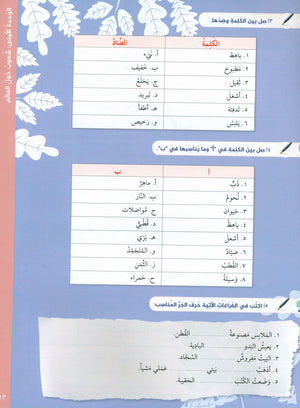 الوحدة الأولى: شعوب حول العالم
٣ صل بين الكلمة وضدها:
الكلمة الضاد
١. باهظ أ. نيء
٢. مطبوخ ب. خفيف
٣. ثقيل ج. يخلع
٤. أشعل د. تبريد
٥. تدفئة هـ. أطفأ
٦. يلبس و. رخيص
٤ صل بين الكلمة في "أ" وما يناسبها في "ب".
أ ب
١. دب أ. ماهر
٢. لحوم ب. النار
٣. حيوان ج. مواصلات
٤. باهظ د. قطبي
٥. أشعل هـ. بري
٦. صياد و. المتجمد
٧. القطب ز. الثمن
٨. وسيلة ح. حمراء
٥ اكتب في الفراغات الآتية حرف الجر المناسب:
١. الملابس مصنوعة القطن.
٢. يعيش البدو البادية.
٣. البيت مفروش السجاد.
٤. أذهب بيتي عملي مشيا.
٥. وضعت الكتب الحقيبة.
١٣